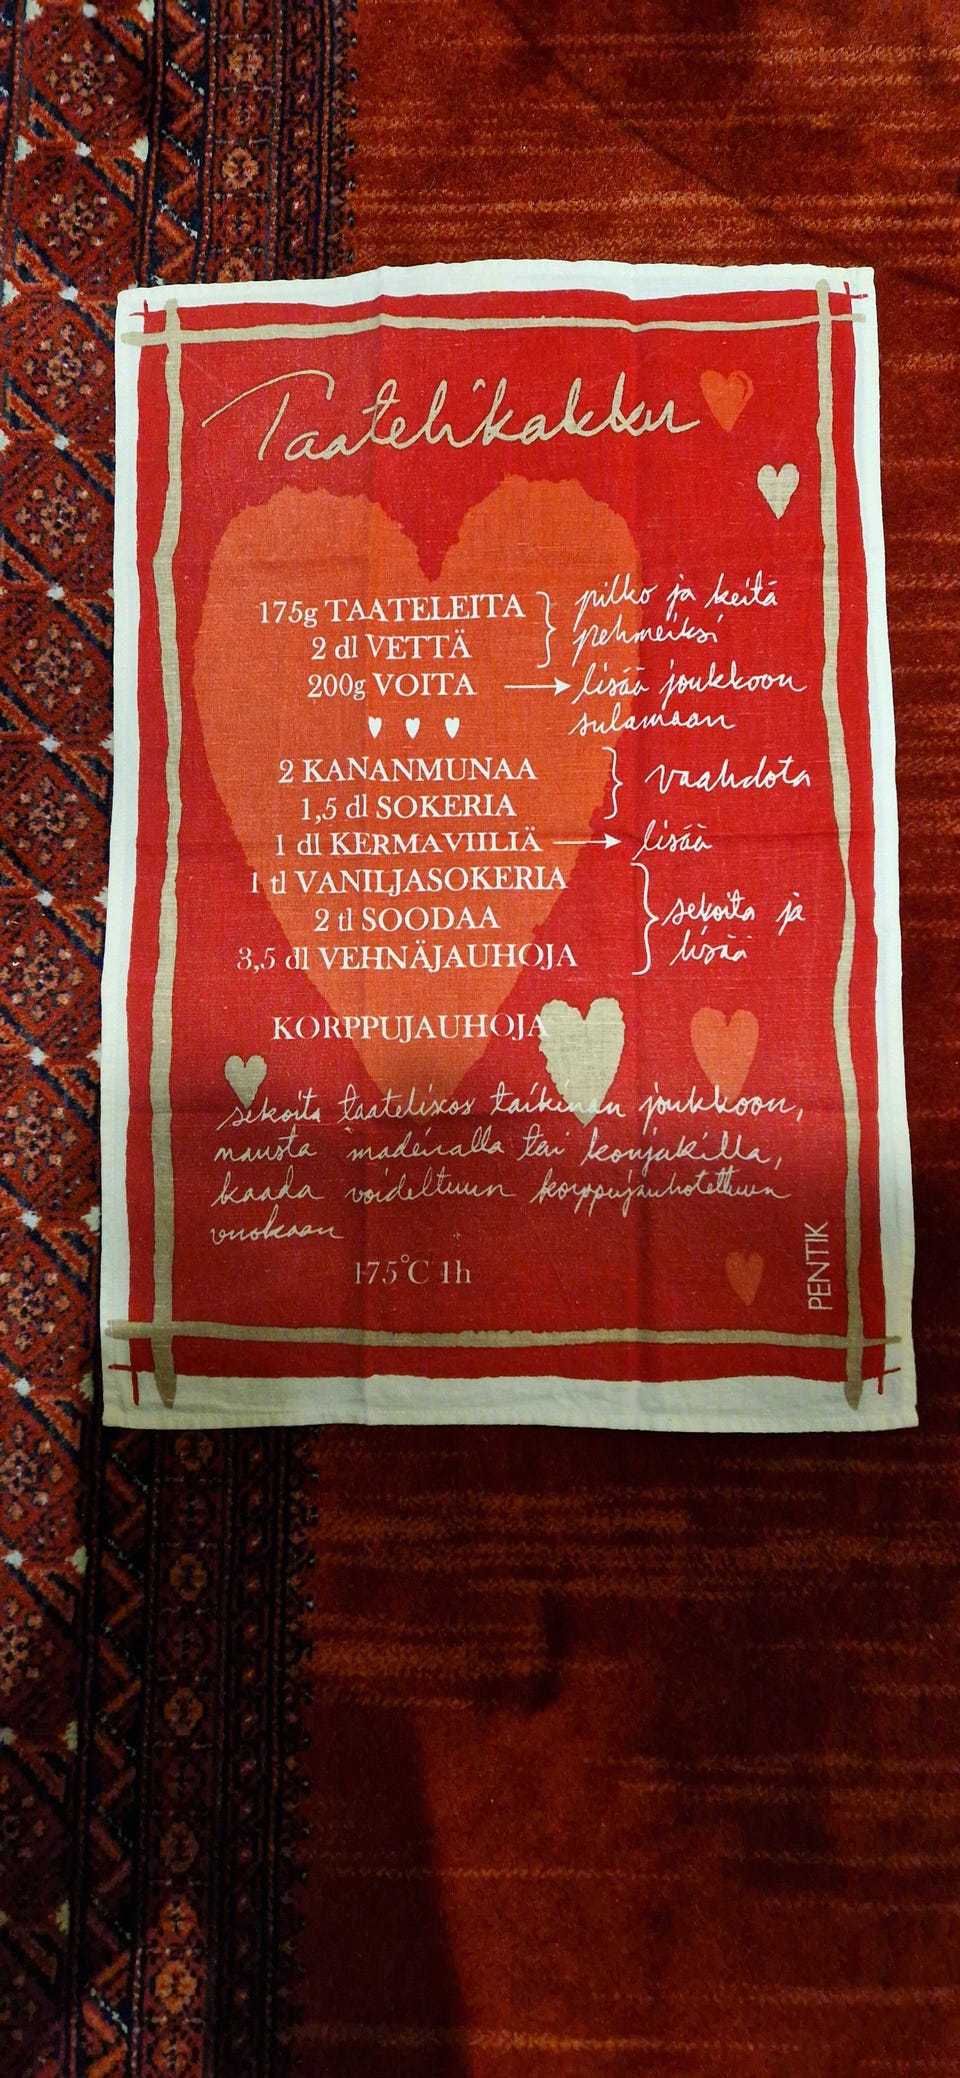 Taatelikakku
175g TAATELEITA } pilko ja keitä
2 dl VETTÄ pehmeiksi
200g VOITA → lisää joukkoon
sulamaan
2 KANANMUNAA } vaahdota
1,5 dl SOKERIA
1 dl KERMAVIILIÄ → lisää
1 tl VANILJASOKERIA
2 tl SOODAA } sekoita ja
3,5 dl VEHNÄJAUHOJA lisää
KORPPUJAUHOJA
sekoita taatelisos taikinan joukkoon,
mausta madeiralla tai konjakilla,
kaada voideltuun korppujauhotettuun
vuokaan
175°C 1h
PENTIK